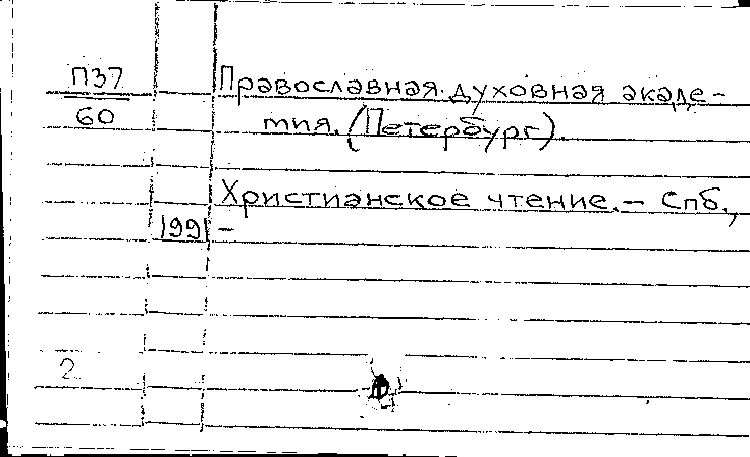 П37
60
Православная духовная акаде-
мия. (Петербург).
Христианское чтение. - Спб.,
1991 -
2